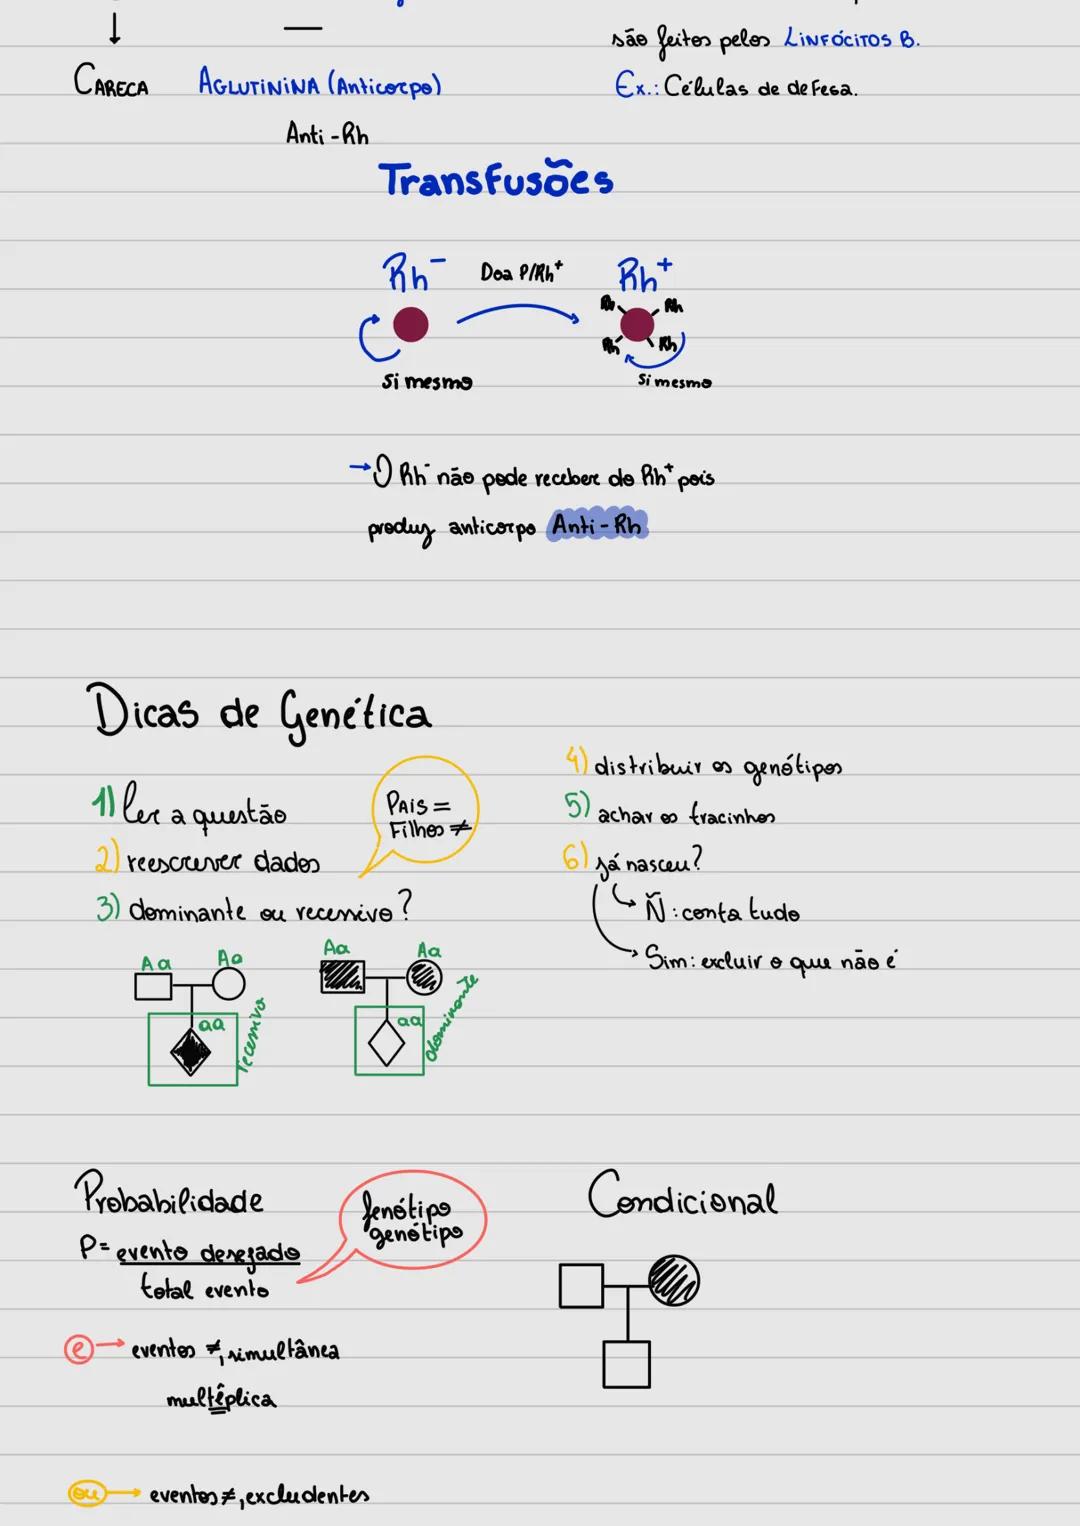 são feitos pelos LINFÓCITOS B.
CARECA AGLUTININA (Anticorpo)
Ex.: Células de defesa.
Anti-Rh
Transfusões
Rh⁻ Doa P/Rh⁺ Rh⁺
Rh Rh
Rh Rh
si mesmo si mesmo
→ O Rh⁻ não pode receber do Rh⁺ pois
produz anticorpo Anti-Rh
Dicas de Genética
1) ler a questão
2) reescrever dados
3) dominante ou recessivo?
PAIS =
Filhos ≠
4) distribuir os genótipos
5) achar os tracinhos
6) já nasceu?
Ñ: conta tudo
Sim: excluir o que não é
Aa Aa
aa
recessivo
Aa Aa
aa
dominante
Probabilidade
P= evento desejado
total evento
fenótipo
genótipo
e → eventos ≠, simultânea
multêplica
ou → eventos ≠, excludentes
Condicional